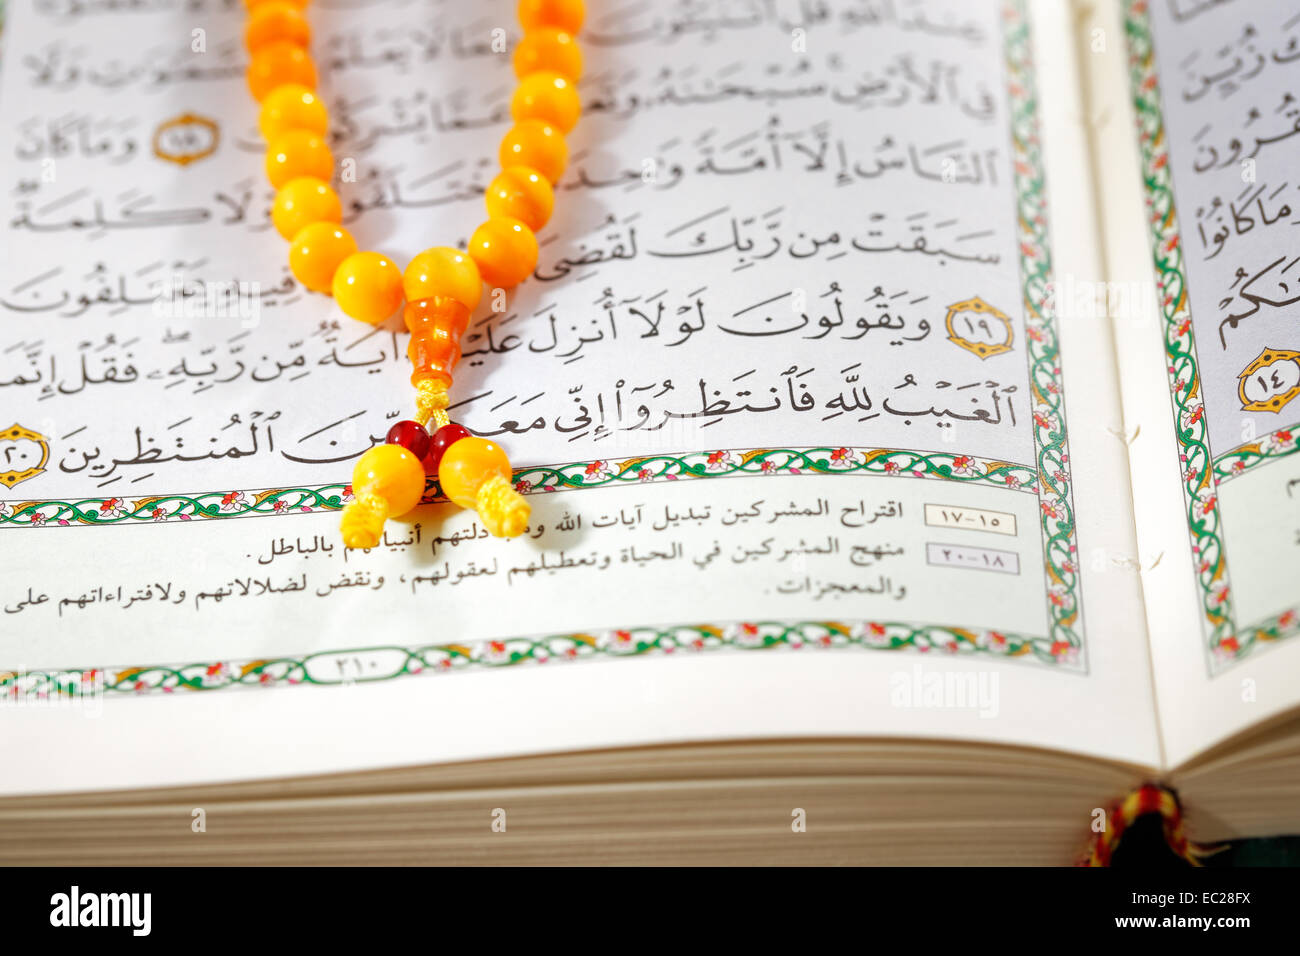 عِندَ ٱللَّهِ قُلْ أَتُنَبِّـُٔونَ بِمَا لَا يَعْلَمُ ٱلسَّمَٰوَٰتِ وَلَا
فِى ٱلْأَرْضِ سُبْحَٰنَهُۥ وَتَعَٰلَىٰ عَمَّا يُشْرِكُونَ ١٨ وَمَا كَانَ
ٱلنَّاسُ إِلَّآ أُمَّةً وَٰحِدَةً فَٱخْتَلَفُوا۟ وَلَوْلَا كَلِمَةٌ
سَبَقَتْ مِن رَّبِّكَ لَقُضِىَ فِيهِ يَخْتَلِفُونَ
١٩ وَيَقُولُونَ لَوْلَآ أُنزِلَ عَلَيْهِ ءَايَةٌ مِّن رَّبِّهِۦ ۖ فَقُلْ إِنَّمَا
ٱلْغَيْبُ لِلَّهِ فَٱنتَظِرُوٓا۟ إِنِّى مَعَكُم مِّنَ ٱلْمُنتَظِرِينَ ٢٠
١٥-١٧ اقتراح المشركين تبديل آيات الله ومجادلتهم أنبياءهم بالباطل.
١٨-٢٠ منهج المشركين في الحياة وتعطيلهم لعقولهم، ونقض لضلالاتهم ولافتراءاتهم على
والمعجزات.
٢١٠
زُيِّنَ
ٱلْقُرُونَ
وَمَا كَانُوا۟
١٤
alamy
Image ID: EC28FX
www.alamy.com